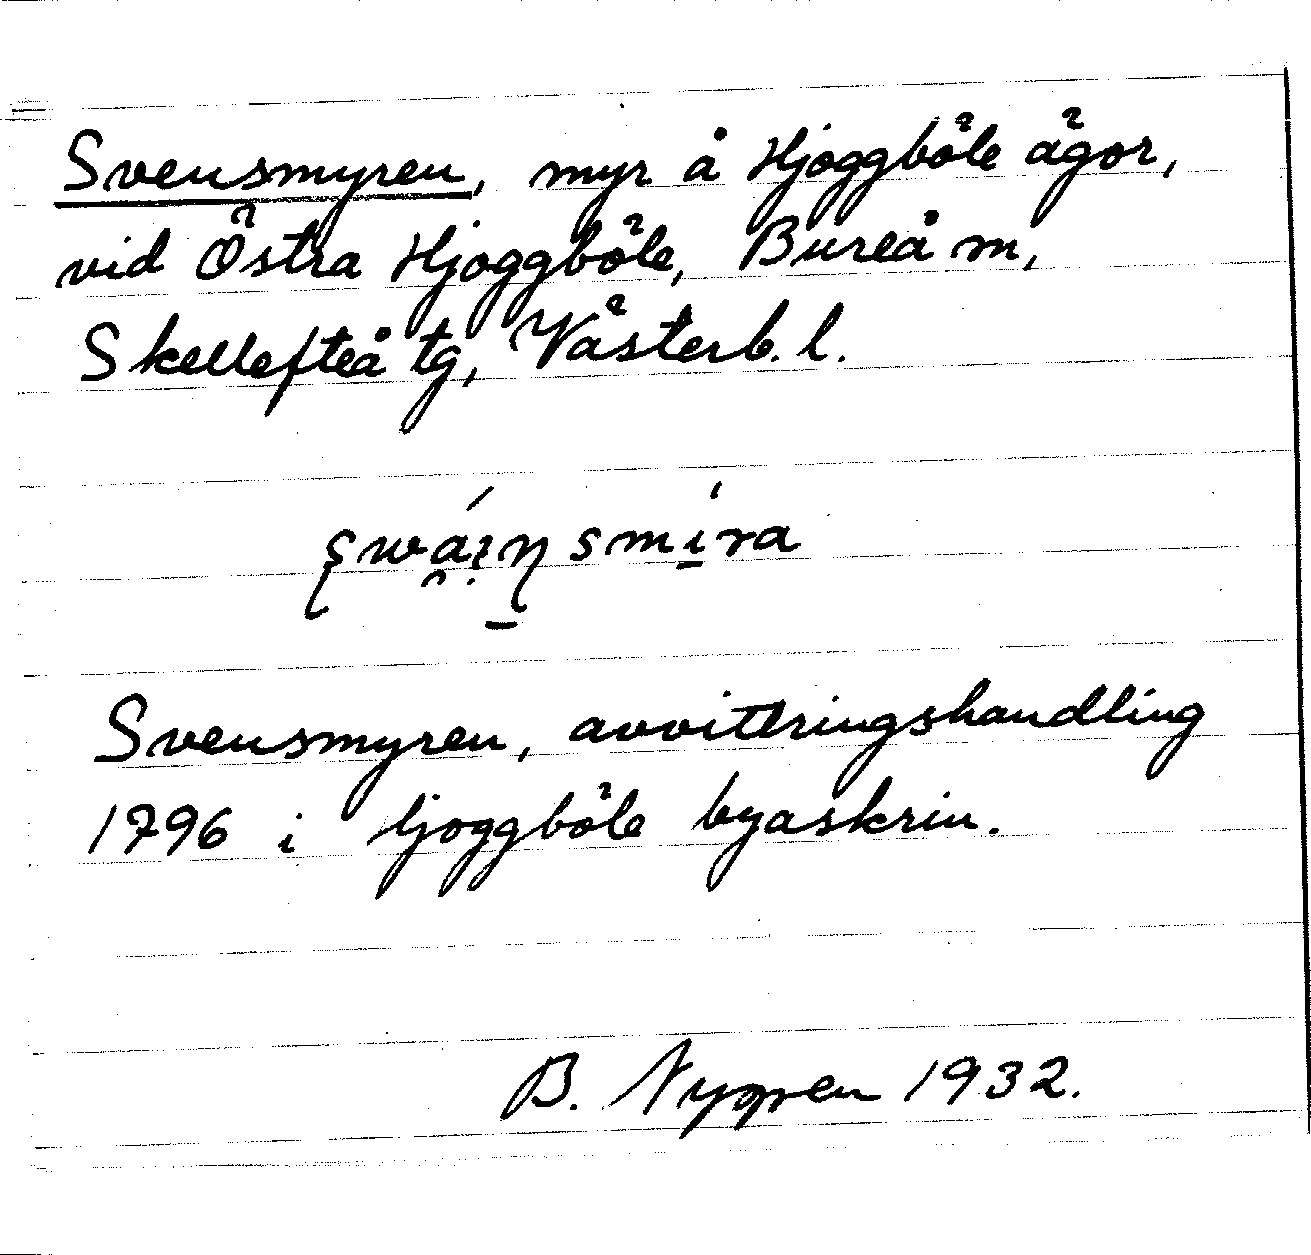 Svensmyren, myr å Hjoggböle ägor,
vid Östra Hjoggböle, Bureå m,
Skellefteå tg, Västerb. l.
Svensmyren, avvittringshandling
1796 i Hjoggböle byaskrin.
B. Nygren 1932.